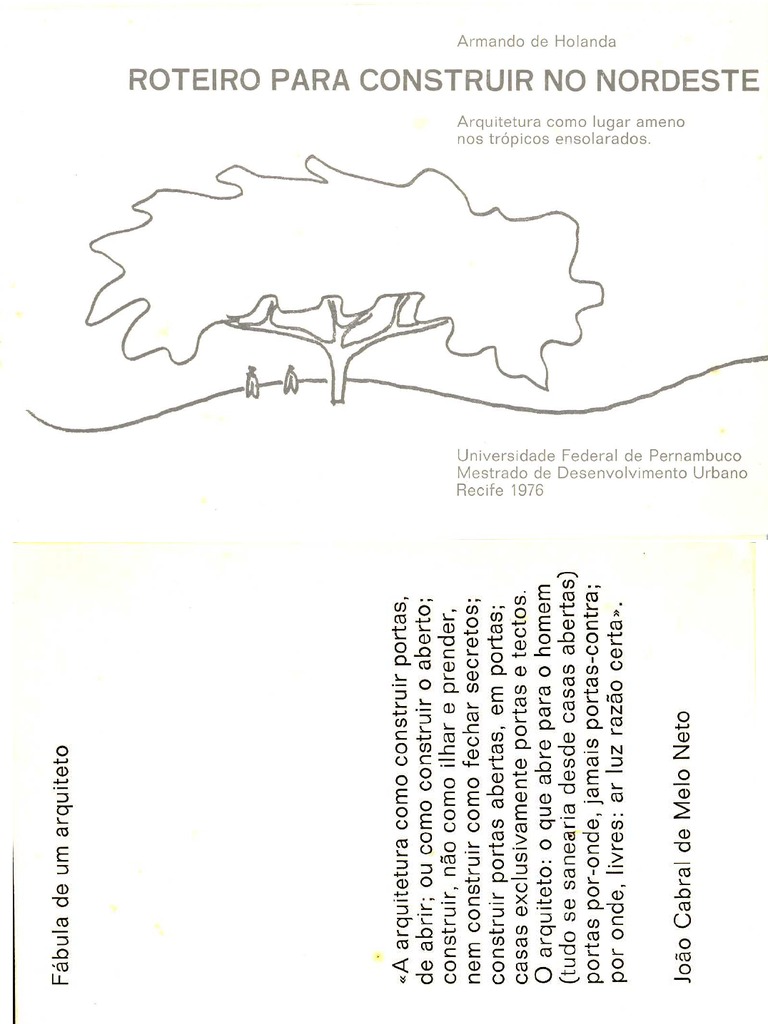 Armando de Holanda
ROTEIRO PARA CONSTRUIR NO NORDESTE
Arquitetura como lugar ameno
nos trópicos ensolarados.
Universidade Federal de Pernambuco
Mestrado de Desenvolvimento Urbano
Recife 1976
Fábula de um arquiteto
«A arquitetura como construir portas,
de abrir; ou como construir o aberto;
construir, não como ilhar e prender,
nem construir como fechar secretos;
construir portas abertas, em portas;
casas exclusivamente portas e tectos.
O arquiteto: o que abre para o homem
(tudo se sanearia desde casas abertas)
portas por-onde, jamais portas-contra;
por onde, livres: ar luz razão certa».
João Cabral de Melo Neto